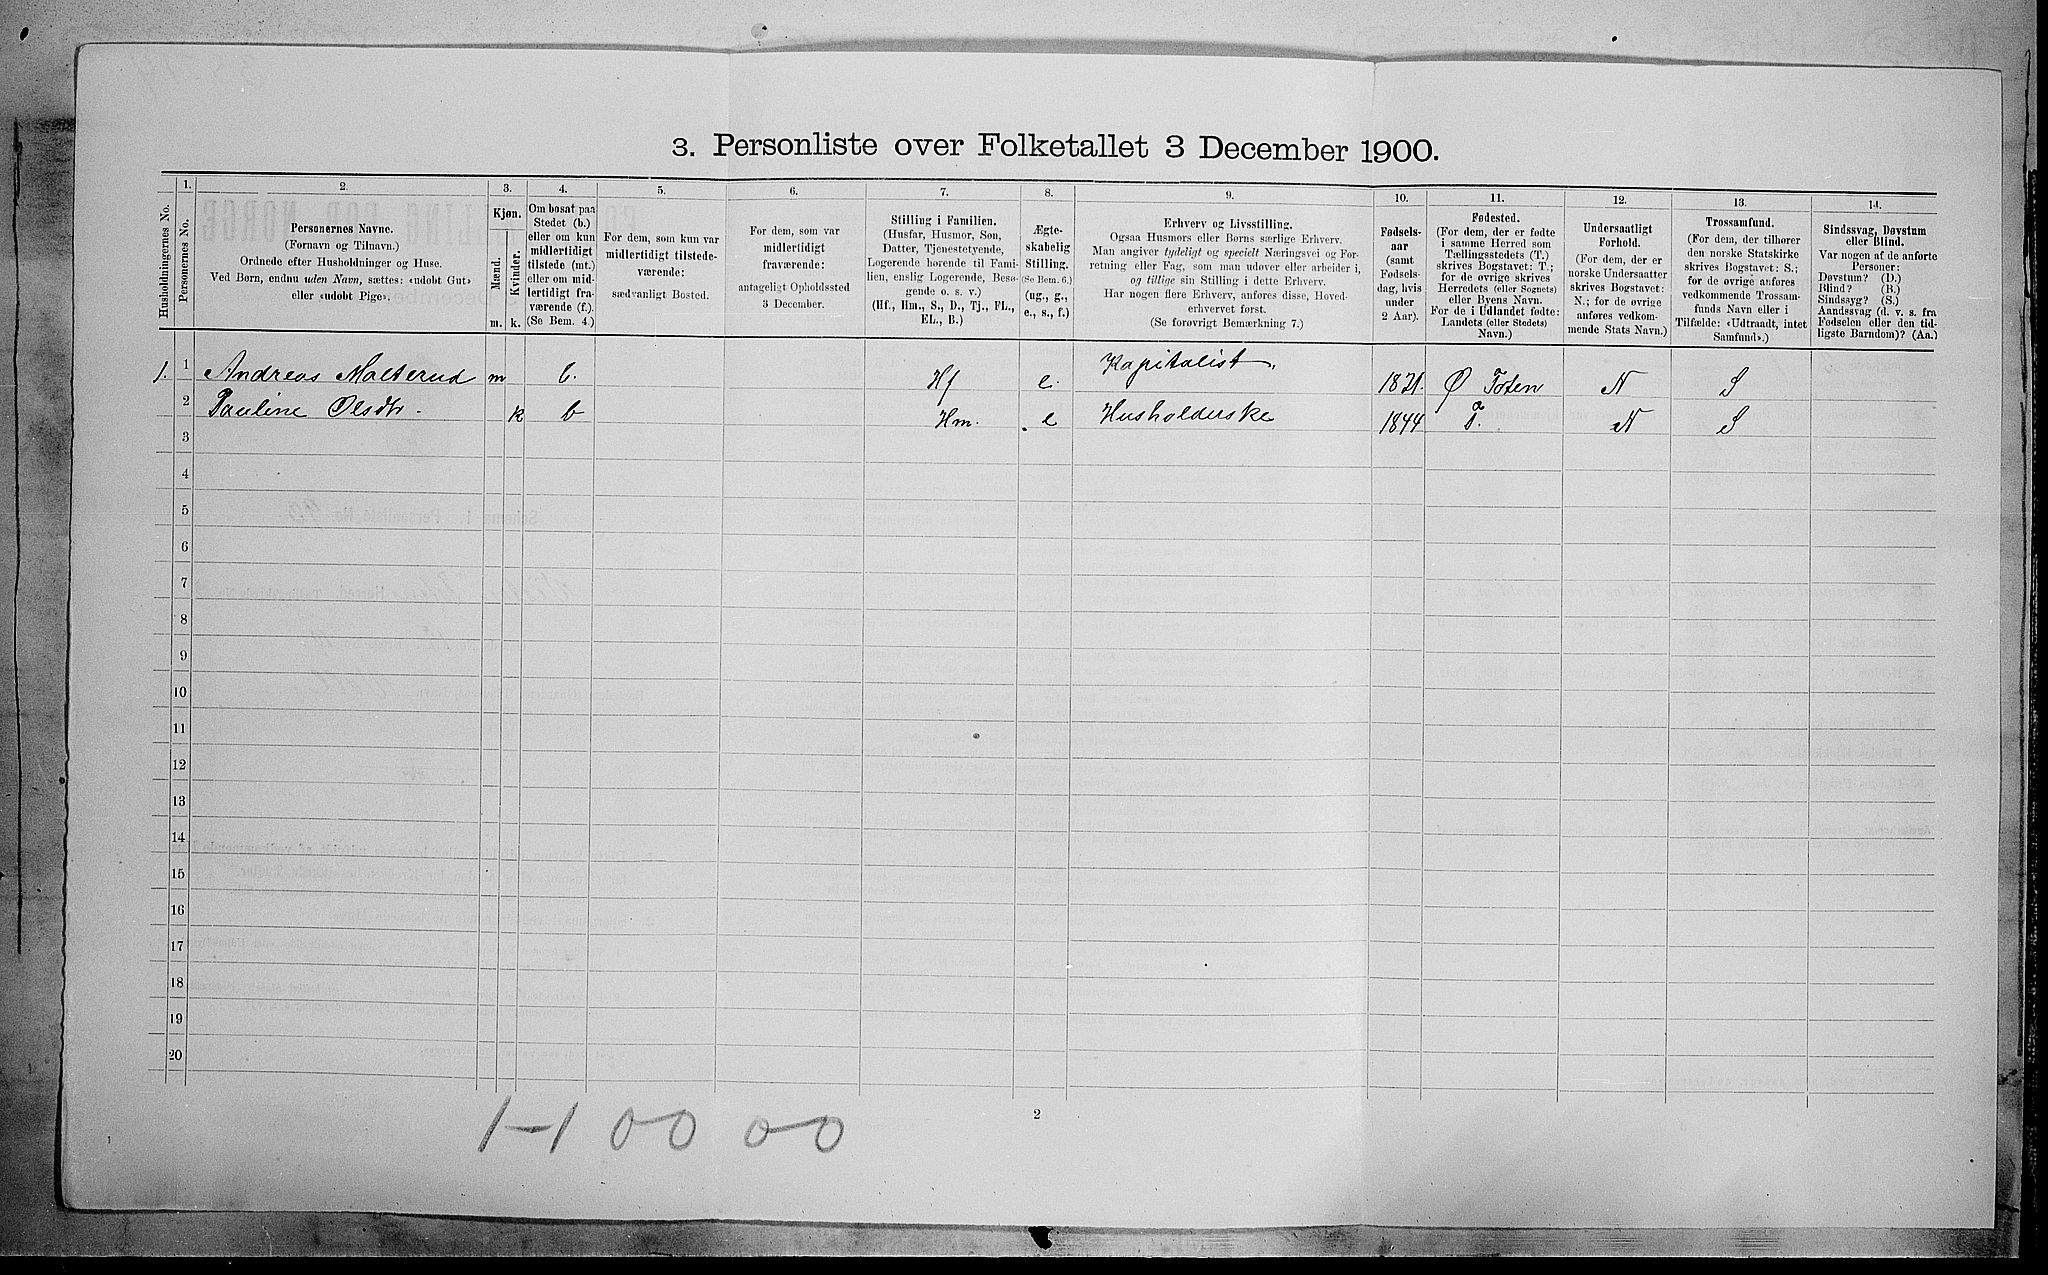 3. Personliste over Folketallet 3 December 1900.
Husholdningernes No.
1.
Personernes No.
2.
Personernes Navne.
(Fornavn og Tilnavn.)
Ordnede efter Husholdninger og Huse.
Ved Børn, endnu uden Navn, sættes: «udøbt Gut»
eller «udøbt Pige».
3.
Kjøn.
Mænd.
Kvinder.
m. k.
4.
Om bosat paa
Stedet (b.)
eller om kun
midlertidigt
tilstede (mt.)
eller om mid-
lertidigt fra-
værende (f.).
(Se Bem. 4.)
5.
For dem, som kun var
midlertidigt tilstede-
værende:
sædvanligt Bosted.
6.
For dem, som var
midlertidigt
fraværende:
antageligt Opholdssted
3 December.
7.
Stilling i Familien.
(Husfar, Husmor, Søn,
Datter, Tjenestetyende,
Logerende hørende til Fami-
lien, enslig Logerende, Besø-
gende o. s. v.)
(Hf., Hm., S., D., Tj., FL.,
EL., B.)
8.
Ægte-
skabelig
Stilling.
(Se Bem. 6.)
(ug., g.,
e., s., f.)
9.
Erhverv og Livsstilling.
Ogsaa Husmors eller Børns særlige Erhverv.
Man angiver tydeligt og specielt Næringsvei og For-
retning eller Fag, som man udøver eller arbeider i,
og tillige sin Stilling i dette Erhverv.
Har nogen flere Erhverv, anføres disse, Hoved-
erhvervet først.
(Se forøvrigt Bemærkning 7.)
10.
Fødsels-
aar
(samt
Fødsels-
dag, hvis
under
2 Aar).
11.
Fødested.
(For dem, der er fødte
i samme Herred som
Tællingsstedets (T.)
skrives Bogstavet: T.;
for de øvrige skrives
Herredets (eller Sognets)
eller Byens Navn.
For de i Udlandet fødte:
Landets (eller Stedets)
Navn.)
12.
Undersaatligt
Forhold.
(For dem, der er
norske Undersaatter
skrives Bogstavet:
N.; for de øvrige
anføres vedkom-
mende Stats Navn.)
13.
Trossamfund.
(For dem, der tilhører
den norske Statskirke
skrives Bogstavet: S.;
for de øvrige anføres
vedkommende Trossam-
funds Navn eller i
Tilfælde: «Udtraadt, intet
Samfund».)
14.
Sindssvag, Døvstum
eller Blind.
Var nogen af de anførte
Personer:
Døvstum? (D.)
Blind? (B.)
Sindssyg? (S.)
Aandssvag (d. v. s. fra
Fødselen eller den tid-
ligste Barndom)? (Aa.)
1. 1 Andreas Malterud m b. Hf e. Kapitalist. 1821. Ø Toten N S
2 Pauline Olsdtr. k b Hm. e Husholderske 1844 T. N S
3
4
5
6
7
8
9
10
11
12
13
14
15
16
17
18
19
20
2
1-1 00 00